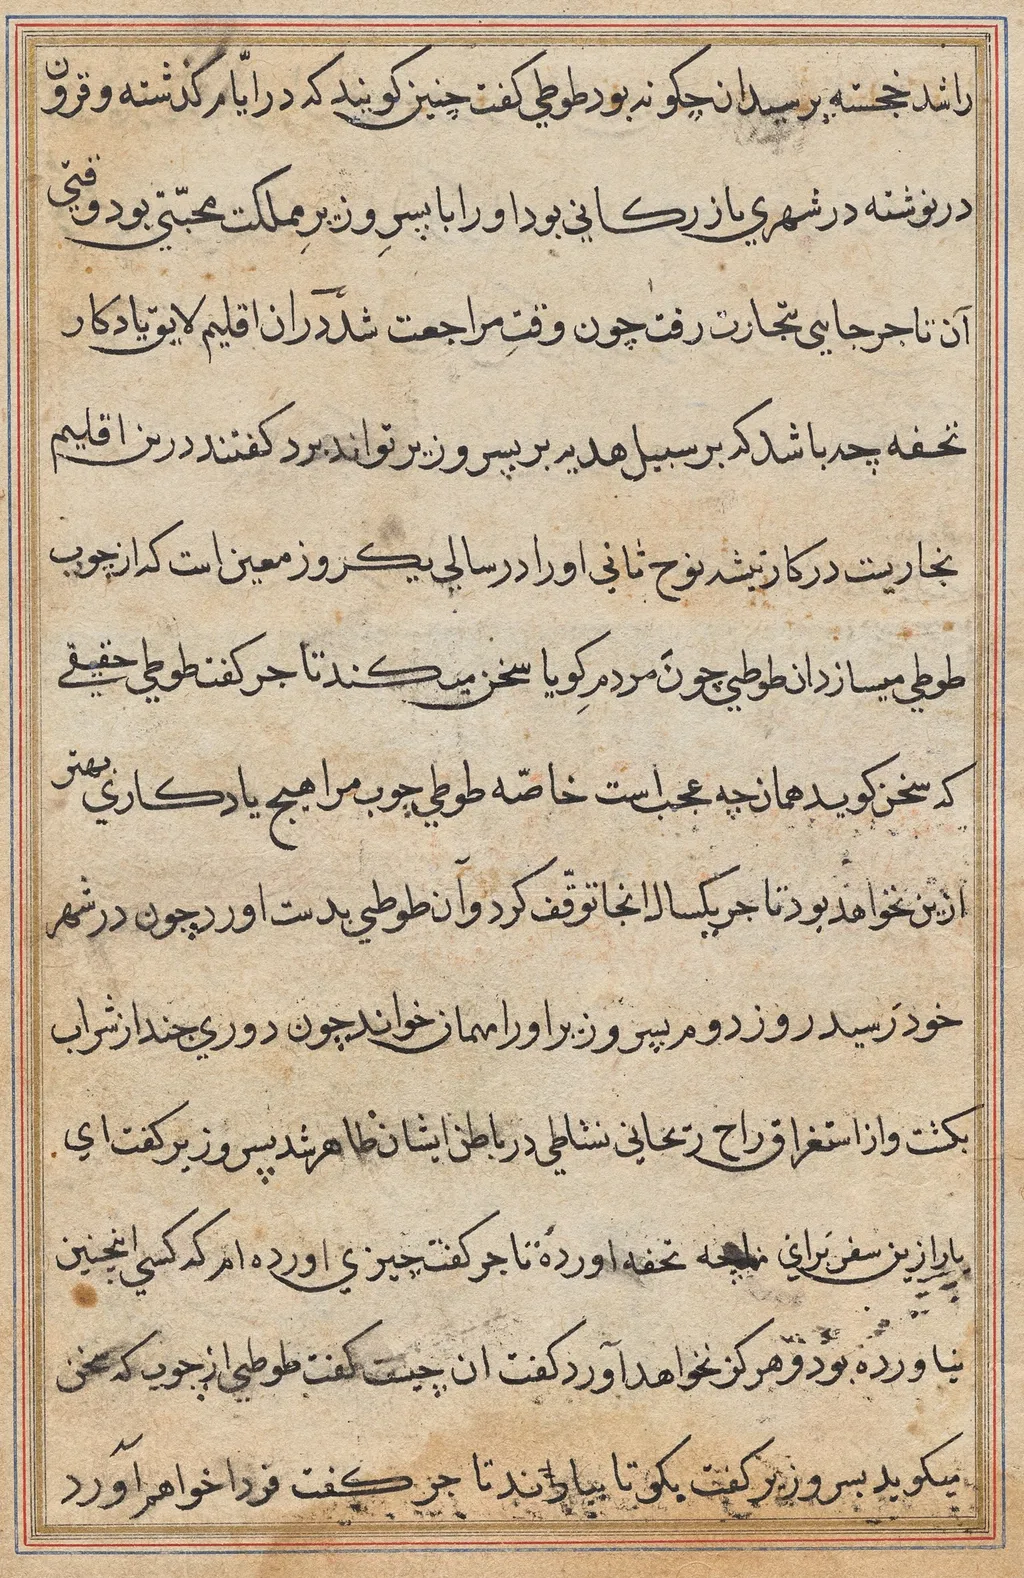 راشد خجسته پرسيد ان چكونه بود طوطي كفت چنين كويند كه در ايّام كذشته و قرون
در نوشته در شهري بازركاني بود او را با پسرِ وزيرِ مملكت محبّتي بود وقتي
آن تاجر جايي بتجارت رفت چون وقتِ مراجعت شد در آن اقليم لايق يادكار
تحفه چه باشد كه بر سبيل هديه بر پسر وزير تواند برد كفتند درين اقليم
نجاريست در كار تيشه نوح ثاني او را در سالي يكروز معين است كه از چوب
طوطي ميسازد ان طوطي چون مردمِ كويا سخن ميكند تاجر كفت طوطي حقيقي
كه سخن كويد همان چه عجب است خاصّه طوطي چوب مرا هيچ يادكاري بهتر
ازين نخواهد بود تاجر يكسال انجا توقّف كرد و آن طوطي بدست اورد چون در شهر
خود رسيد روز دوم پسر وزير او را مهمان خواند چون دوري چند از شراب
بكشت و از استغراق راح ريحاني نشاطي در باطن ايشان ظاهر شد پسر وزير كفت اي
يار ازين سفر براي ما چه تحفه اوردهٔ تاجر كفت چيزي اورده ام كه كسي اينچنين
نياورده بود و هركز نخواهد آورد كفت ان چيست كفت طوطي از چوب كه سخن
ميكويد پسر وزير كفت بكو تا بيارند تاجر كفت فردا خواهم آورد